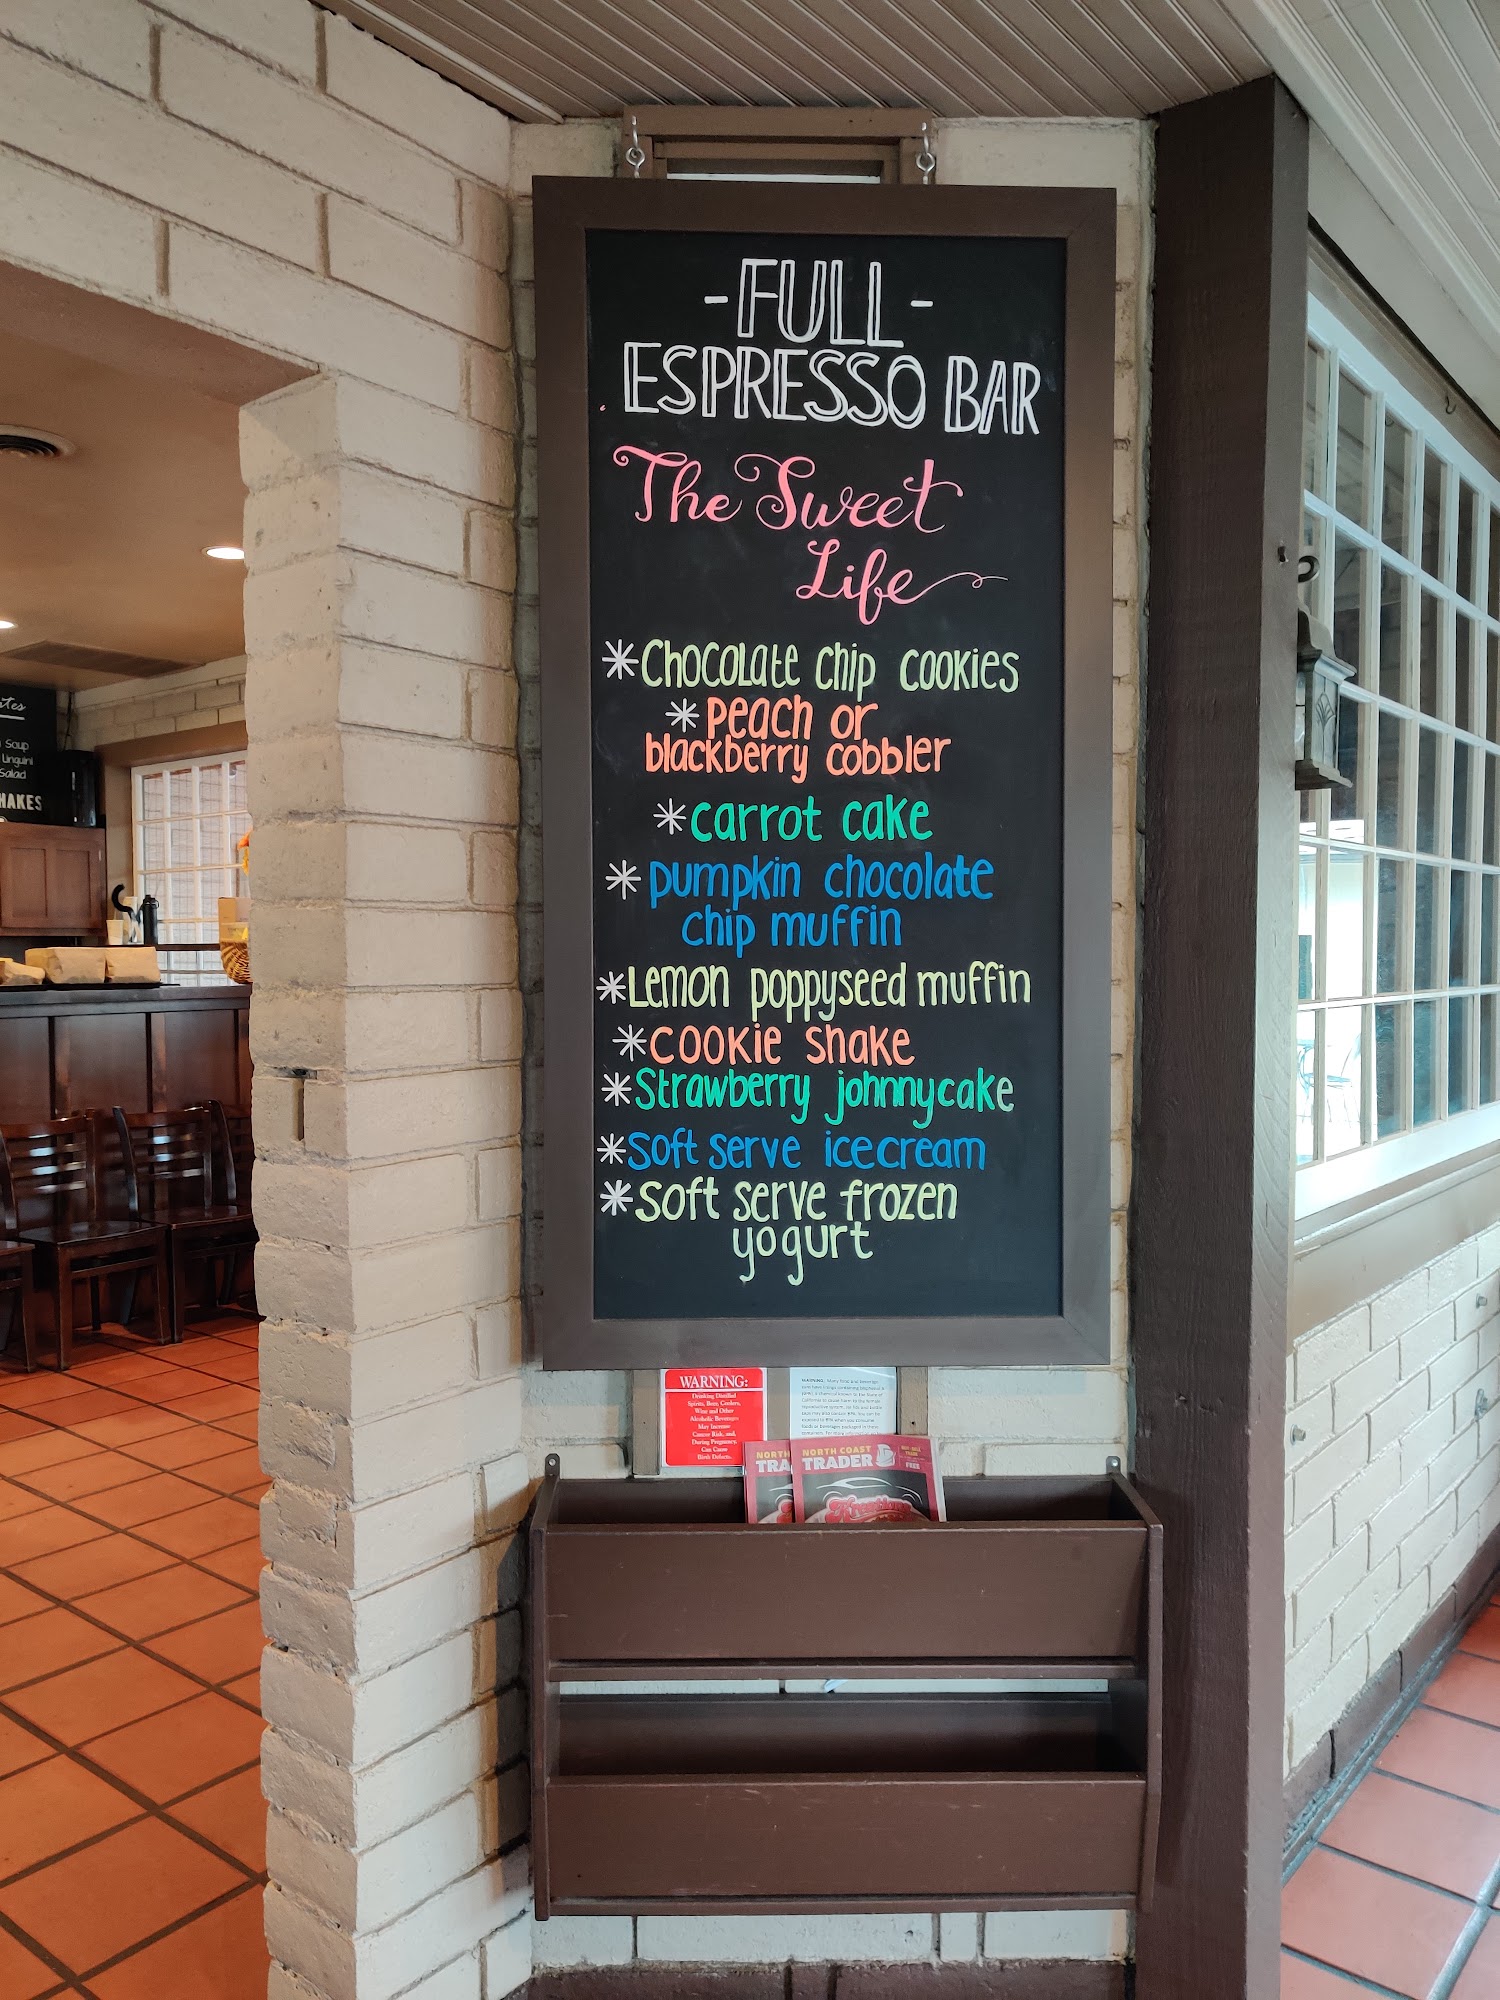 -FULL-
ESPRESSO BAR
The Sweet
Life
*Chocolate chip cookies
*peach or
blackberry cobbler
*carrot cake
*pumpkin chocolate
chip muffin
*Lemon poppyseed muffin
*cookie shake
*Strawberry johnnycake
*Soft serve icecream
*Soft serve frozen
yogurt
Soup
Linguini
Salad
HAKES
WARNING:
Drinking Distilled
Spirits, Beer, Coolers,
Wine and Other
Alcoholic Beverages
May Increase
Cancer Risk, and,
During Pregnancy,
Can Cause
Birth Defects.
WARNING: Many food and beverage
NORTH
TRA
NORTH COAST
TRADER
FREE